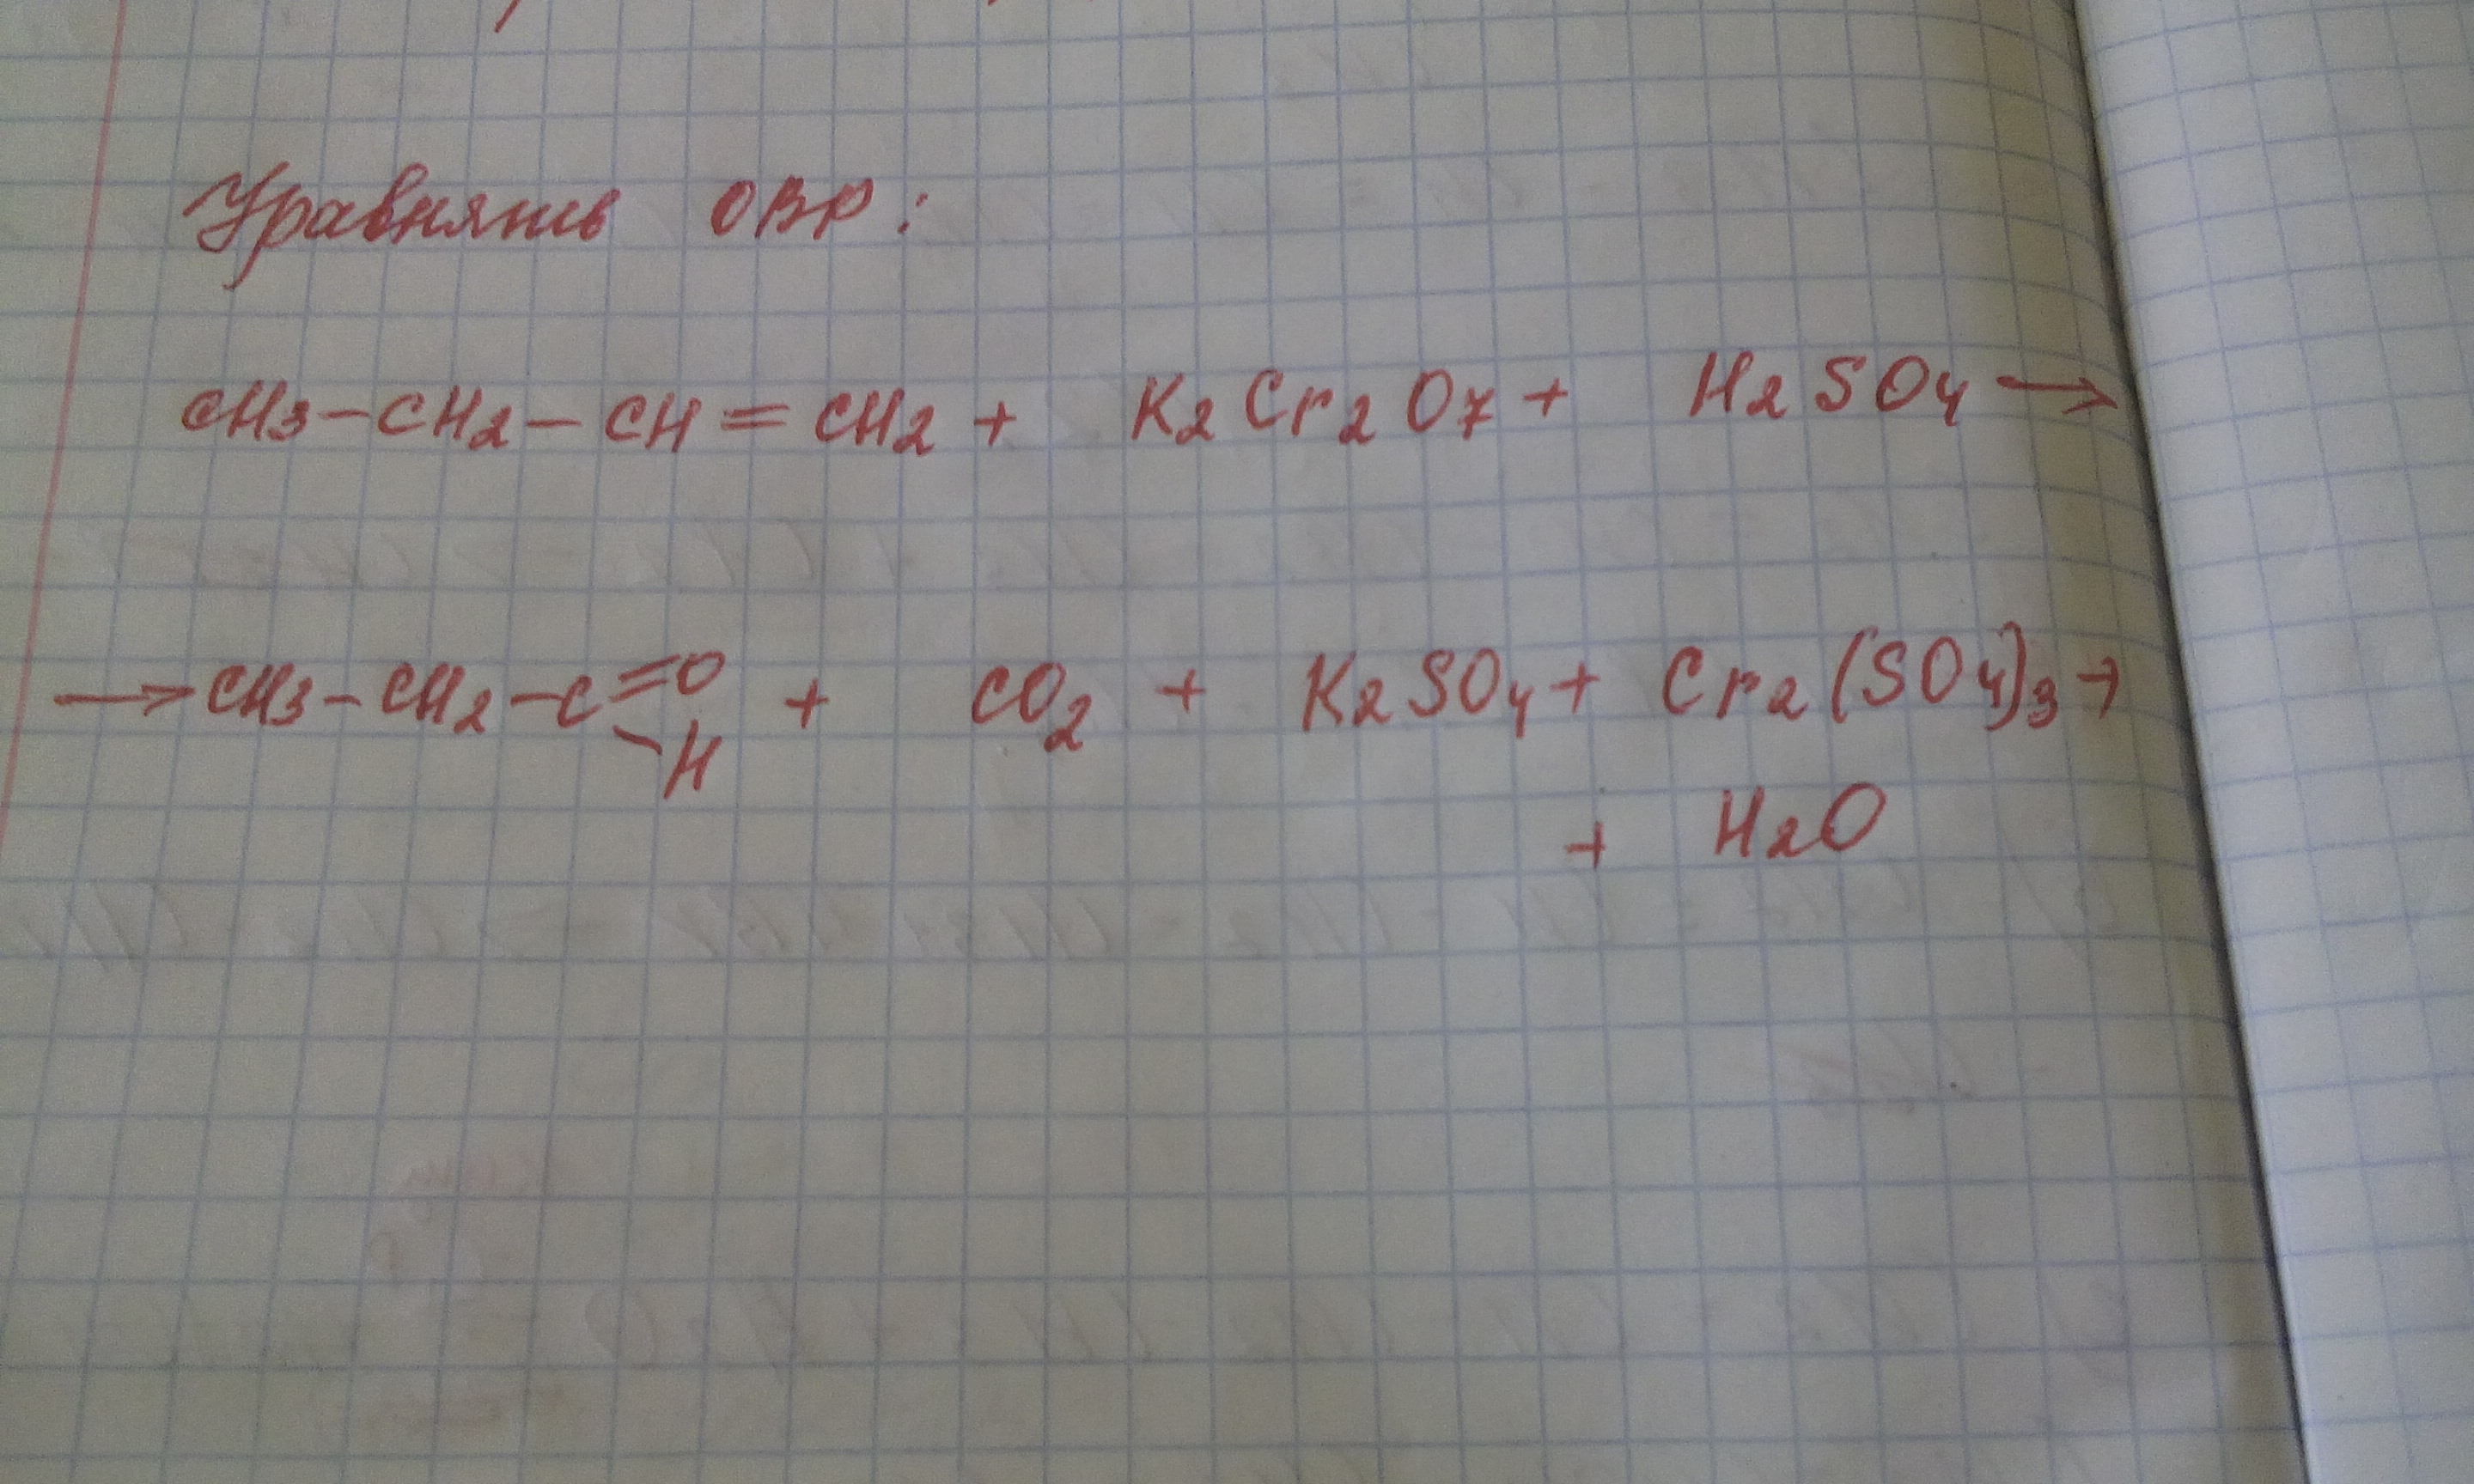 Уравнять ОВР:
CH3-CH2-CH=CH2+ K2Cr2O7+ H2SO4→
→CH3-CH2-C=O + CO2 + K2SO4+ Cr2(SO4)3+
-H
+ H2O